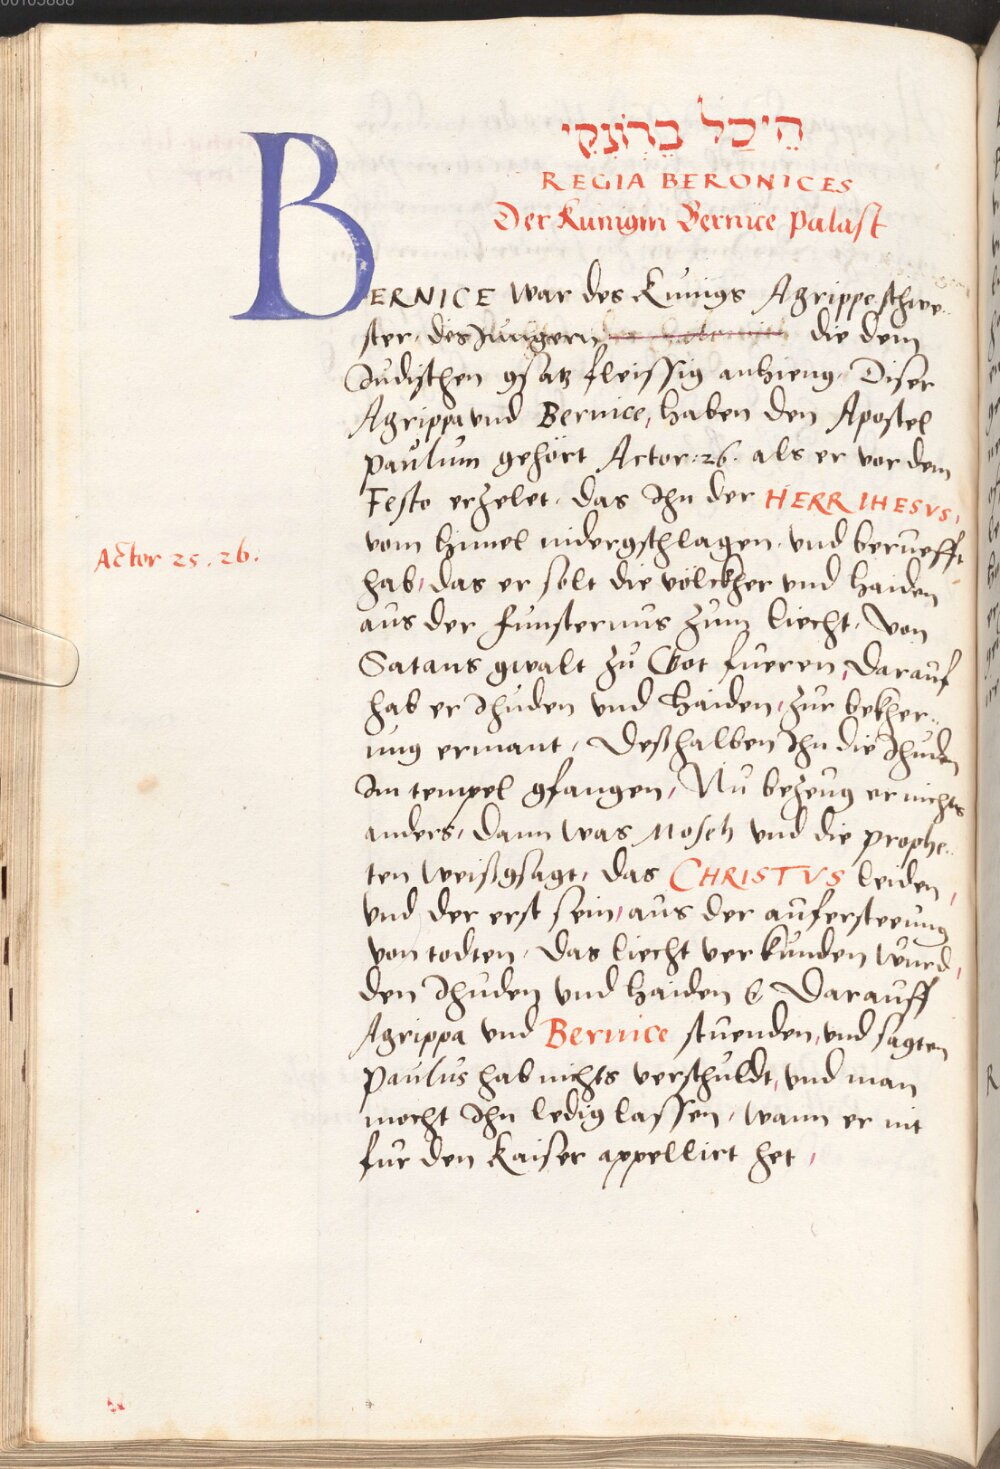 00105888
הֵיכַל בֵרוֹנִקִי
REGIA BERONICES
Der Kunigin Bernice Palast
BERNICE war des Kunigs Agrippe schwe-
ster, des Jungern die dem
Judischen gsatz fleissig anhieng, Diser
Agrippa und Bernice, haben den Apostel
Paulum gehört Actor. 26. als er vor dem
Festo erzelet, das Ihn der HERR IHESVS,
vom himel nidergschlagen, und beruefft
hab, das er solt die völckher und haiden
aus der funsternus zum liecht, von
Satans gwalt zu Got fueren, Darauf
hab er Jhuden und Haiden, zur bekher-
ung ermant, Deßhalben Ihn die Jhuden
Im tempel gfangen, Nu bezeug er nichts
anders, dann was Moseh und die prophe-
ten weißgsagt, das CHRISTVS leiden,
und der erst sein, aus der aufersteeung
von todten, das liecht verkunden wurd,
den Jhuden und haiden &. Darauff
Agrippa und Bernice stuenden, und sagten
Paulus hab nichts verschuldt, und man
mocht Ihn ledig lassen, wann er nit
fur den Kaiser appellirt het,
Actor 25. 26.